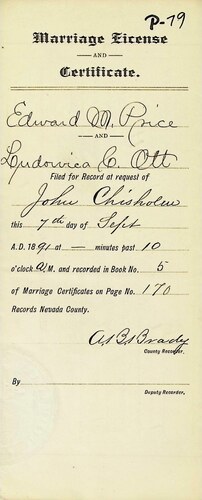 P-79
Marriage License
AND
Certificate.
Edward M. Price
AND
Ludowica C. Ott
Filed for Record at request of
John Chisholm
this 7th day of Sept
A.D. 1891 at — minutes past 10
o'clock A M. and recorded in Book No. 5
of Marriage Certificates on Page No. 170
Records Nevada County.
Brady
County Recorder.
By
Deputy Recorder.